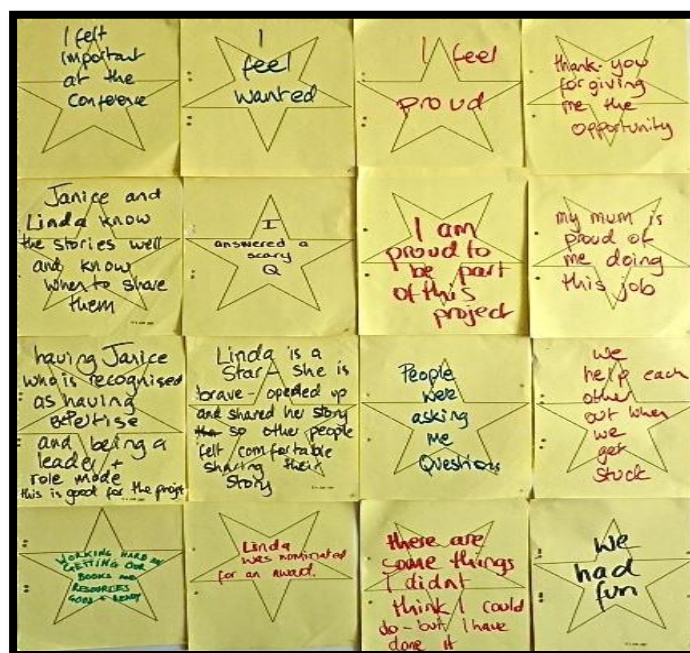 I felt
important
at the
Conference
I
feel
wanted
I feel
proud
thank-you
for giving
me the
opportunity
Janice and
Linda know
the stories well
and know
when to share
them
I
answered a
scary
Q
I am
proud to
be part
of this
project
my mum is
proud of
me doing
this job
having Janice
who is recognised
as having
expertise
and being a
leader +
role mode
this is good for the projet
Linda is a
Star - she is
brave - opened up
and shared her story
so other people
felt comfortable
sharing their
Story
People
were
asking
me
Questions
we
help each
other
out when
we
get
stuck
WORKING HARD ON
GETTING OUR
BOOKS AND
RESOURCES
GOOD + READY
Linda
was nominated
for an award.
there are
some things
I didnt
think I could
do - but I have
done it
we
had
fun